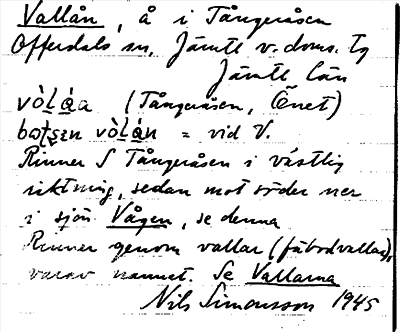 Vallån, å i Tångeråsen
Offerdals sn, Jämtl. v. doms. tg
Jämtl. län
vòlá̱a (Tångeråsen, Önet)
vòlá̱n = vid V.
Rinner S Tångeråsen i västlig
riktning, sedan mot söder ner
i sjön Vågen, se denna
Rinner genom vallar (fäbodvallar),
varav namnet. Se Vallarna
Nils Simonsson 1945